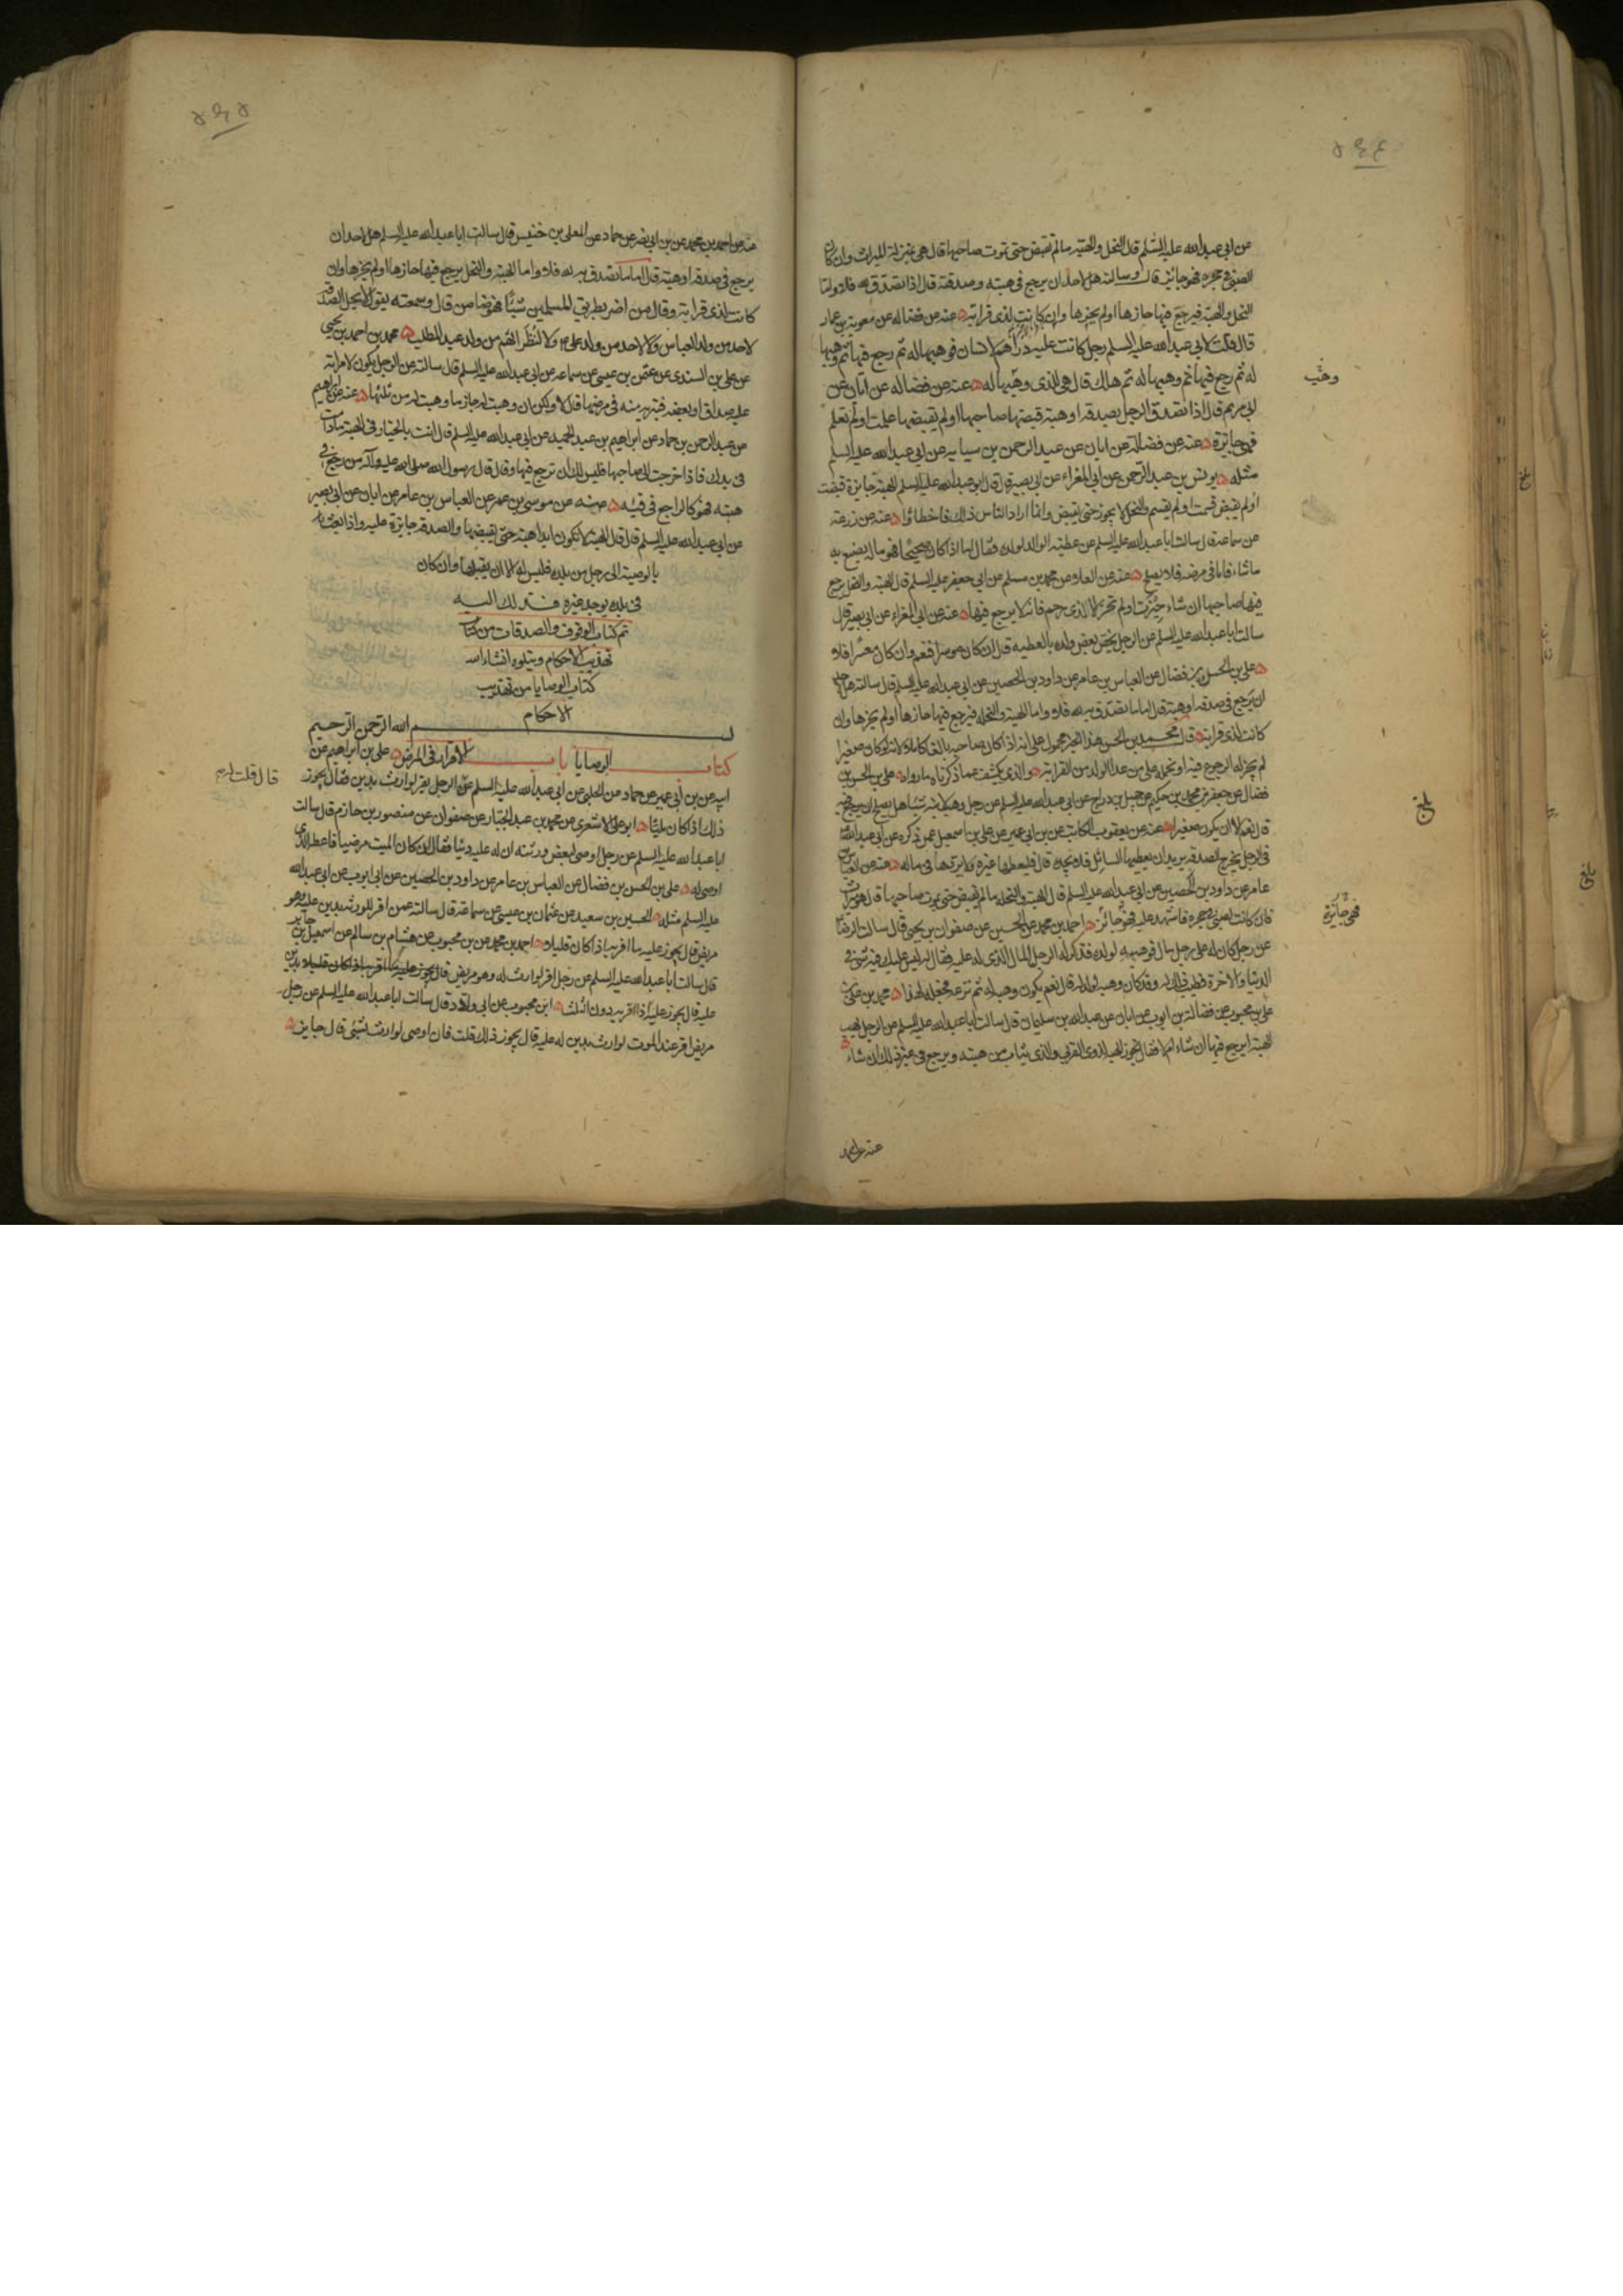 عن ابي عبدالله عليه السلم قال النحل والهبة ما لم تقبض حتى يموت صاحبها قال هي بمنزلة الميراث وان كان
الصبي في حجره فهو جائز قال وسالته هل لاحد ان يرجع في هبته وصدقته قال اذا تصدق لله فلا واما
النحل والهبة فيرجع فيها حازها او لم يحزها وان كانت لذى قرابة ه عنه عن فضاله عن معوية بن عمار
قال قلت لابي عبدالله عليه السلم رجل كانت عليه دراهم لانسان فوهبها له ثم رجع فيها ثم وهبها
له ثم رجع فيها ثم وهبها له ثم هلك قال هي للذى وهبها له ه عنه عن فضاله عن ابان عن
ابي مريم قال اذا تصدق الرجل بصدقة او هبة قبضها صاحبها او لم يقبضها علمت او لم تعلم
فهي جائزة ه عنه عن فضالة عن ابان عن عبد الرحمن بن سيابه عن ابي عبدالله عليه السلم
مثله ه يونس بن عبد الرحمن عن ابي المغراء عن ابي بصير قال قال ابو عبدالله عليه السلم الهبة جايزة قبضت
او لم يقبض قسمت او لم يقسم والنحل لا يجوز حتى يقبض وانما اراد الناس ذلك فاخطاوا ه عنه عن زرعة
عن سماعة قال سالت ابا عبدالله عليه السلم عن عطية الوالد لولده فقال اما اذا كان صحيحا فهو ماله يصنع به
ماشاء فاما في مرضه فلا يصلح ه عنه عن العلا عن محمد بن مسلم عن ابي جعفر عليه السلم قال الهبة والنحل يرجع
فيها صاحبها ان شاء حيزت او لم تحز الا لذى رحم فانه لا يرجع فيها ه عنه عن ابي المغراء عن ابي بصير قال
سالت ابا عبدالله عليه السلم عن الرجل يخص بعض ولده بالعطيه قال ان كان موسرا فنعم وان كان معسرا فلا
ه علي بن الحسن بن فضال عن العباس بن عامر عن داود بن الحصين عن ابي عبدالله عليه السلم قال سالته هل لاحد
ان يرجع في صدقة او هبة قال اما ما تصدق به لله فلا واما الهبة والنحلة فيرجع فيها حازها او لم يحزها وان
كانت لذى قرابة ه قال محمد بن الحسن هذا الخبر محمول على انه اذا كان صاحبه بالغا كاملا لانه لو كان صغيرا
لم يجز له الرجوع فيه او نحمله على من عدا الولد من القرابة ه والذى يكشف عما ذكرناه ما رواه ه علي بن الحسن بن
فضال عن جعفر بن محمد بن حكيم عن جميل بن دراج عن ابي عبدالله عليه السلم عن رجل وهب لابنه شيئا هل يصلح ان يرجع فيه
قال نعم الا ان يكون صغيرا ه عنه عن يعقوب الكاتب عن بن ابي عمير عن علي بن اسمعيل عمن ذكره عن ابي عبدالله
في الرجل يخرج الصدقه يريد ان يعطيها السائل فلا يجده قال فليعطها غيره ولا يردها في ماله ه عنه عن العباس بن
عامر عن داود بن الحصين عن ابي عبدالله عليه السلم قال الهبة والنحلة ما لم تقبض حتى يموت صاحبها قال هو ميراث
فان كانت لصبي في حجره فاشهد عليه فهو جائز ه احمد بن محمد عن الحسين عن صفوان بن يحيى قال سالت الرضا
عن رجل كان له على رجل مال فوهبه لولده فذكر له الرجل المال الذى له عليه فقال له ليس عليك فيه شئ في
الدنيا والاخرة يطيب ذلك له وقد كان وهبه لولد له قال نعم يكون وهبه له ثم نزعه فجعله لهذا ه محمد بن علي بن
علي بن محبوب عن فضالة بن ايوب عن ابان عن عبدالله بن سليمان قال سالت ابا عبدالله عليه السلم عن الرجل يهب
الهبة ايرجع فيها ان شاء ام لا فقال تجوز الهبة لذوى القربى والذى يثاب من هبته ويرجع في غير ذلك ان شاء ه
فهي جائزة
بلغ
عنه عن احمد
عنه عن احمد بن محمد عن بن ابي نصر عن حماد عن المعلى بن خنيس قال سالت ابا عبدالله عليه السلم هل لاحد ان
يرجع في صدقة او هبة قال اما ما تصدق به لله فلا واما الهبة والنحل يرجع فيها حازها او لم يحزها وان
كانت لذى قرابة وقال من اضر بطريق المسلمين شيئا فهو ضامن قال وسمعته يقول لا يحل الصدقة
لاحد من ولد العباس ولا لاحد من ولد علي ع ولا لنظرائهم من ولد عبد المطلب ه محمد بن احمد بن يحيى
عن علي بن السندى عن عثمن بن عيسى عن سماعه عن ابي عبدالله عليه السلم قال سالته عن الرجل يكون لامراته
عليه صداق او بعضه فتبريه منه في مرضها قال لا ولكن ان وهبت له جاز ما وهبت له من ثلثها ه عنه عن ابراهيم
عن عبد الرحمن بن حماد عن ابراهيم بن عبد الحميد عن ابي عبدالله عليه السلم قال انت بالخيار في الهبة مادامت
في يدك فاذا خرجت الى صاحبها فليس لك ان ترجع فيها وقال قال رسول الله صلى الله عليه وآله من رجع في
هبته فهو كالراجع في قيئه ه عنه عن موسى بن عمر عن العباس بن عامر عن ابان عن ابي بصير
عن ابي عبدالله عليه السلم قال قال الهبة لا تكون ابدا هبة حتى يقبضها والصدقة جايزة عليه واذا بعث
بالوصية الى رجل من بلده فليس له الا ان يقبلها وان كان
في بلده يوجد غيره فذلك اليه
تم كتاب الوقوف والصدقات من كتاب
تهذيب الاحكام ويتلوه انشاءالله
كتاب الوصايا من تهذيب
الاحكام
بسم الله الرحمن الرحيم
كتاب الوصايا باب الاقرار في المرض ه علي بن ابراهيم عن
ابيه عن بن ابي عمير عن حماد عن الحلبي عن ابي عبدالله عليه السلم عن الرجل يقر لوارث بدين فقال يجوز
قال قلت له
ذلك اذا كان مليئا ه ابو علي الاشعرى عن محمد بن عبد الجبار عن صفوان عن منصور بن حازم قال سالت
ابا عبدالله عليه السلم عن رجل اوصى لبعض ورثته ان له عليه دينا فقال ان كان الميت مرضيا فاعطه الذى
اوصى له ه علي بن الحسن بن فضال عن العباس بن عامر عن داود بن الحصين عن ابي ايوب عن ابي عبدالله
عليه السلم مثله ه الحسين بن سعيد عن عثمان بن عيسى عن سماعة قال سالته عمن اقر للورثة بدين عليه وهو
مريض قال يجوز عليه ما اقر به اذا كان قليلا ه احمد بن محمد عن بن محبوب عن هشام بن سالم عن اسمعيل بن جابر
قال سالت ابا عبدالله عليه السلم عن رجل اقر لوارث له وهو مريض قال يجوز عليه ما اقر به اذا كان قليلا بدين
عليه قال يجوز عليه اذا اقر به دون الثلث ه ابن محبوب عن ابي ولاد قال سالت ابا عبدالله عليه السلم عن رجل
مريض اقر عند الموت لوارث بدين له عليه قال يجوز ذلك قلت فان اوصى لوارث بشئ قال جايز ه